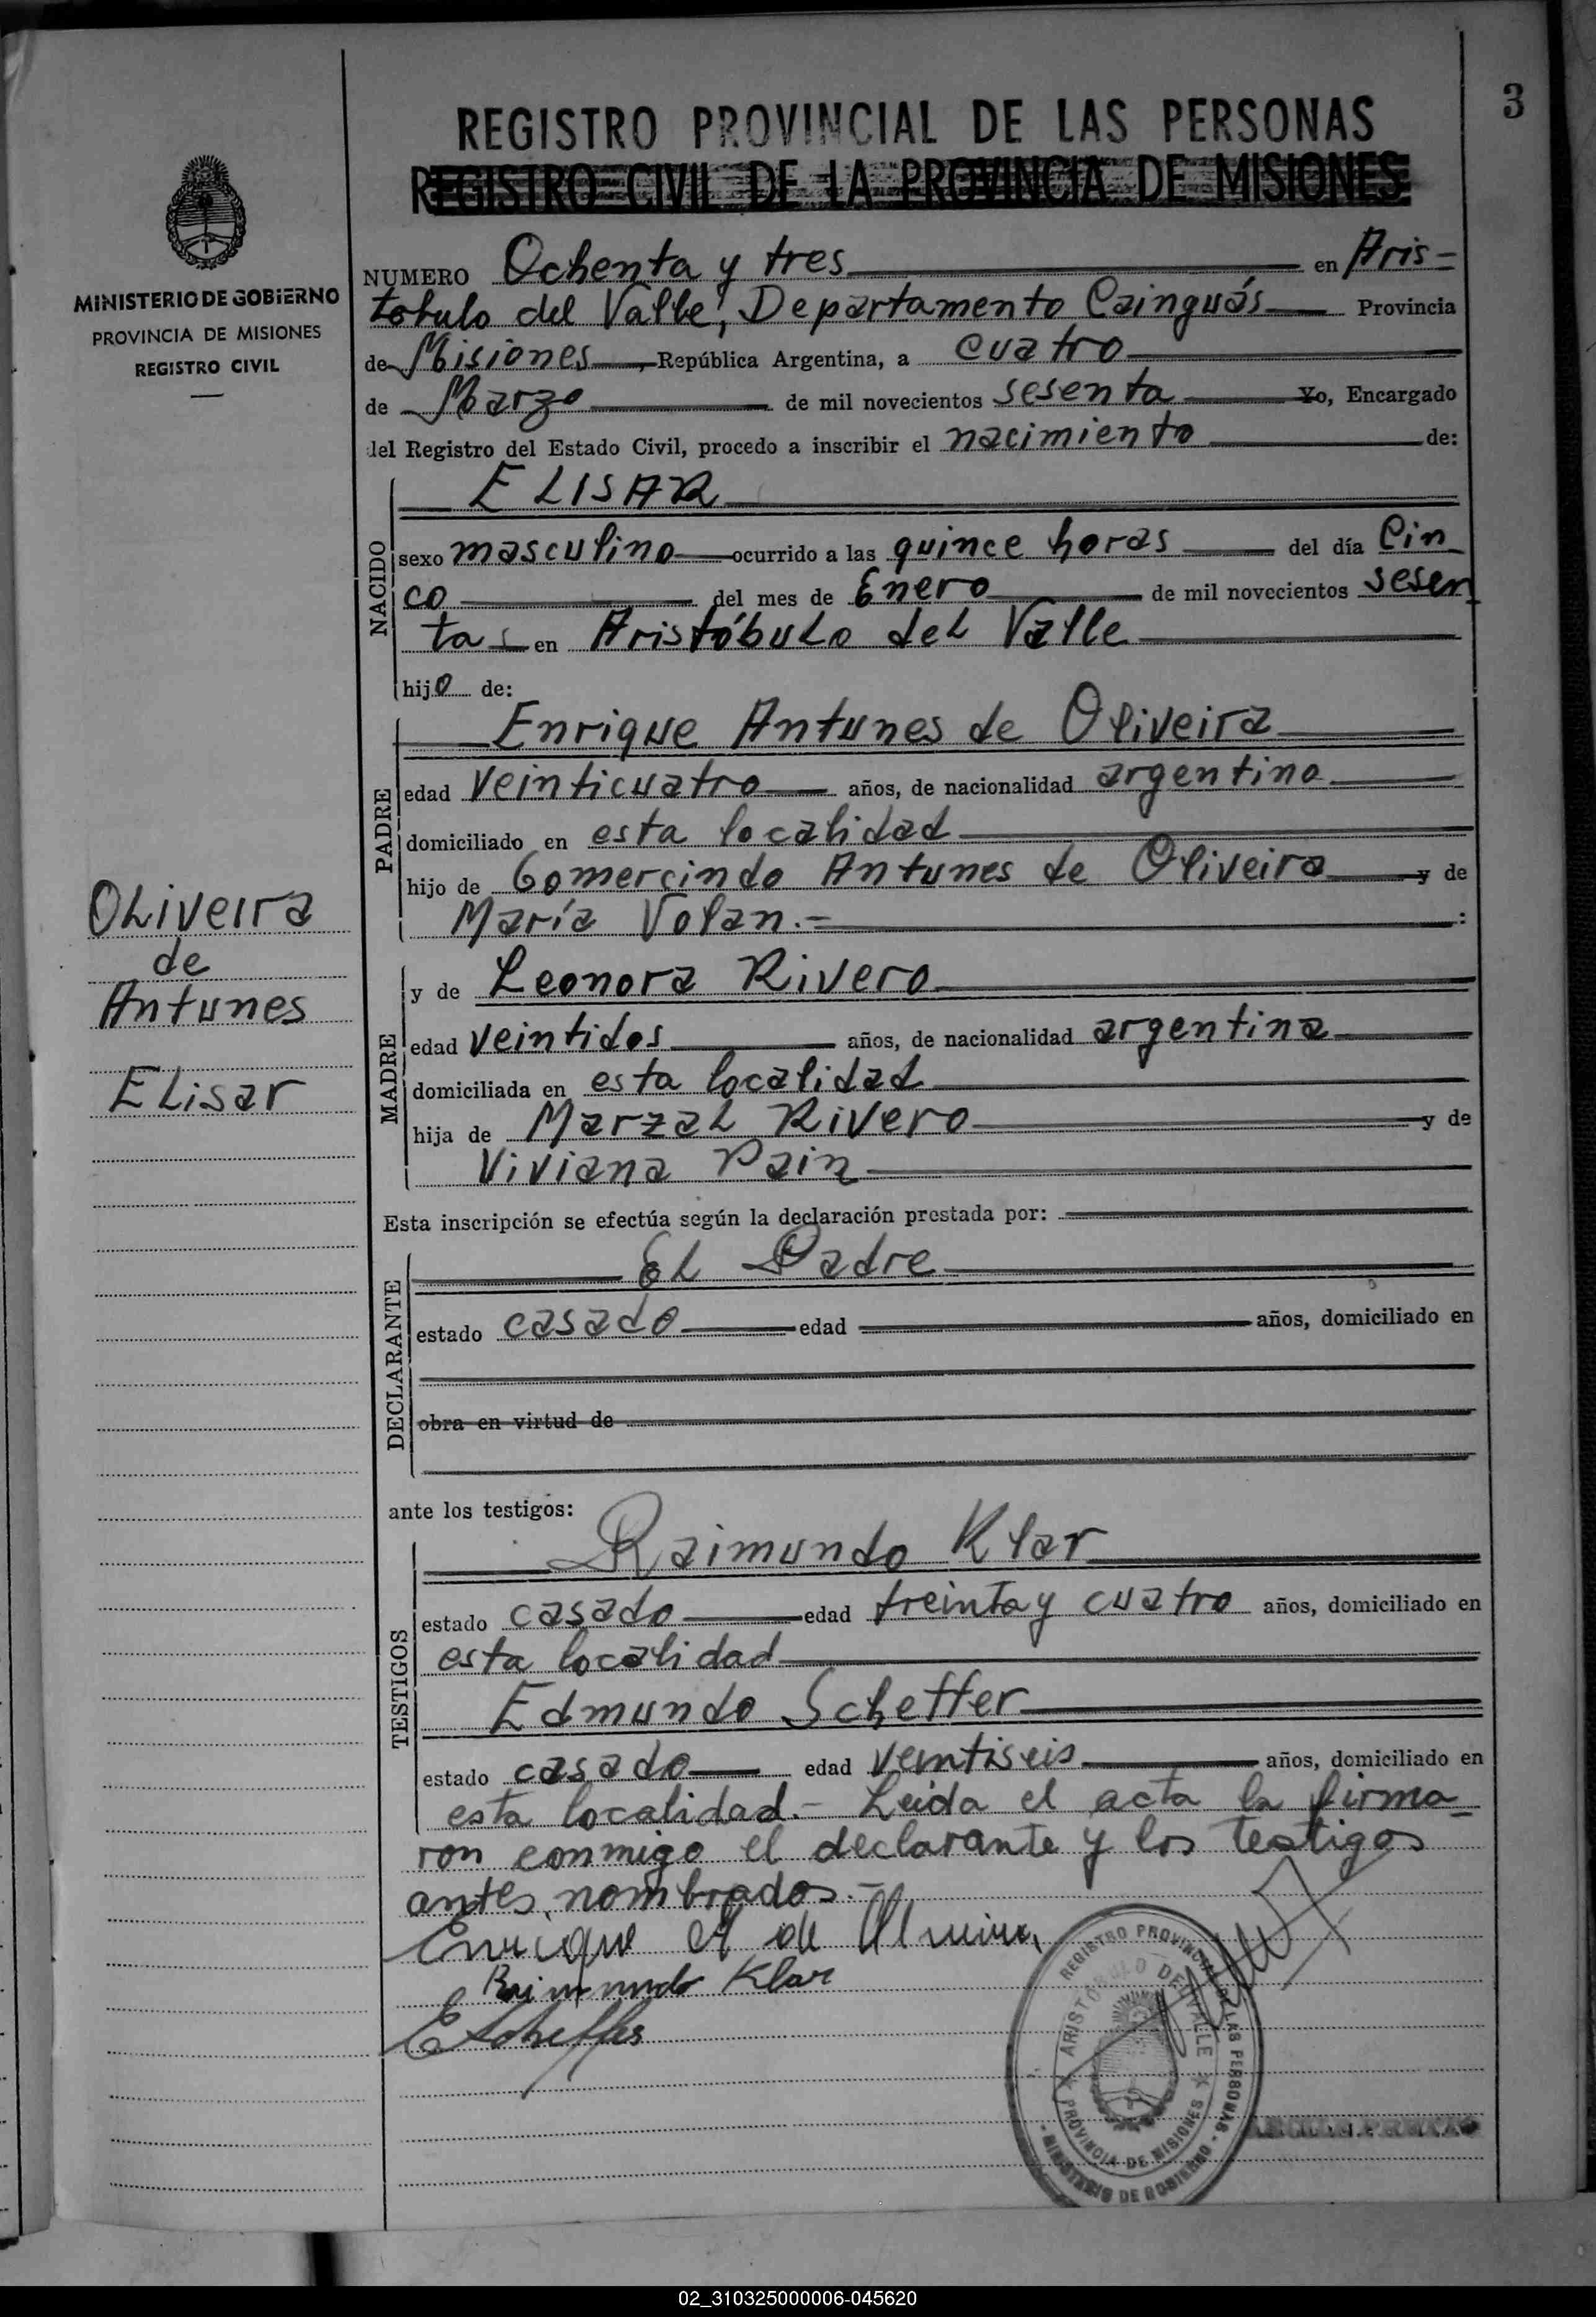 3
REGISTRO PROVINCIAL DE LAS PERSONAS
REGISTRO CIVIL DE LA PROVINCIA DE MISIONES
MINISTERIO DE GOBIERNO
PROVINCIA DE MISIONES
REGISTRO CIVIL
NUMERO Ochenta y tres en Aris=
tobulo del Valle, Departamento Cainguás Provincia
de Misiones, República Argentina, a cuatro
de Marzo de mil novecientos sesenta Yo, Encargado
del Registro del Estado Civil, procedo a inscribir el nacimiento de:
NACIDO
ELISAR
sexo masculino ocurrido a las quince horas del día Cin
co del mes de Enero de mil novecientos sesen
ta en Aristóbulo del Valle
hijo de:
PADRE
Enrique Antunes de Oliveira
edad veinticuatro años, de nacionalidad argentino
domiciliado en esta localidad
hijo de Gomercindo Antunes de Oliveira y de
María Volan.=
Oliveira
de
Antunes
Elisar
MADRE
y de Leonora Rivero
edad veintidos años, de nacionalidad argentina
domiciliada en esta localidad
hija de Marzal Rivero y de
Viviana Pain
Esta inscripción se efectúa según la declaración prestada por:
DECLARANTE
El Padre
estado casado edad años, domiciliado en
obra en virtud de
ante los testigos:
TESTIGOS
Raimundo Klar
estado casado edad treinta y cuatro años, domiciliado en
esta localidad
Edmundo Scheffer
estado casado edad veintiseis años, domiciliado en
esta localidad.- Leida el acta la firma
ron conmigo el declarante y los testigos
antes nombrados.-
Enrique A de Oliveira
Raimundo Klar
E Scheffer
REGISTRO PROVINCIAL DE LAS PERSONAS - MINISTERIO DE GOBIERNO -
ARISTOBULO DEL VALLE
PROVINCIA DE MISIONES
02_310325000006-045620